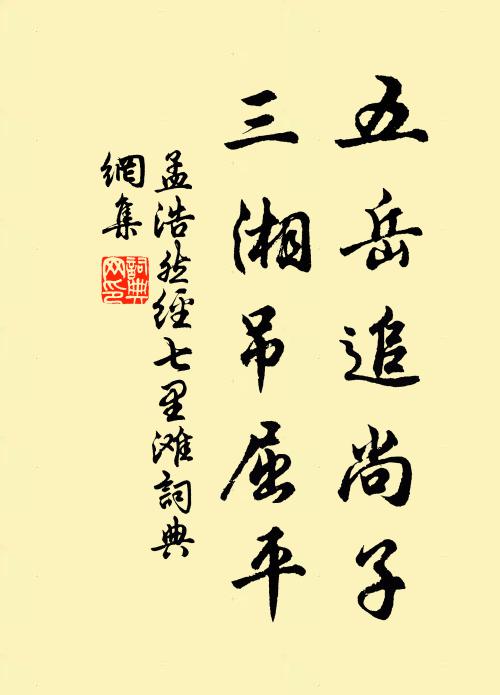 五岳追尚子
三湘吊屈平
孟浩然經七里滩詞典
網集
詞典
网印